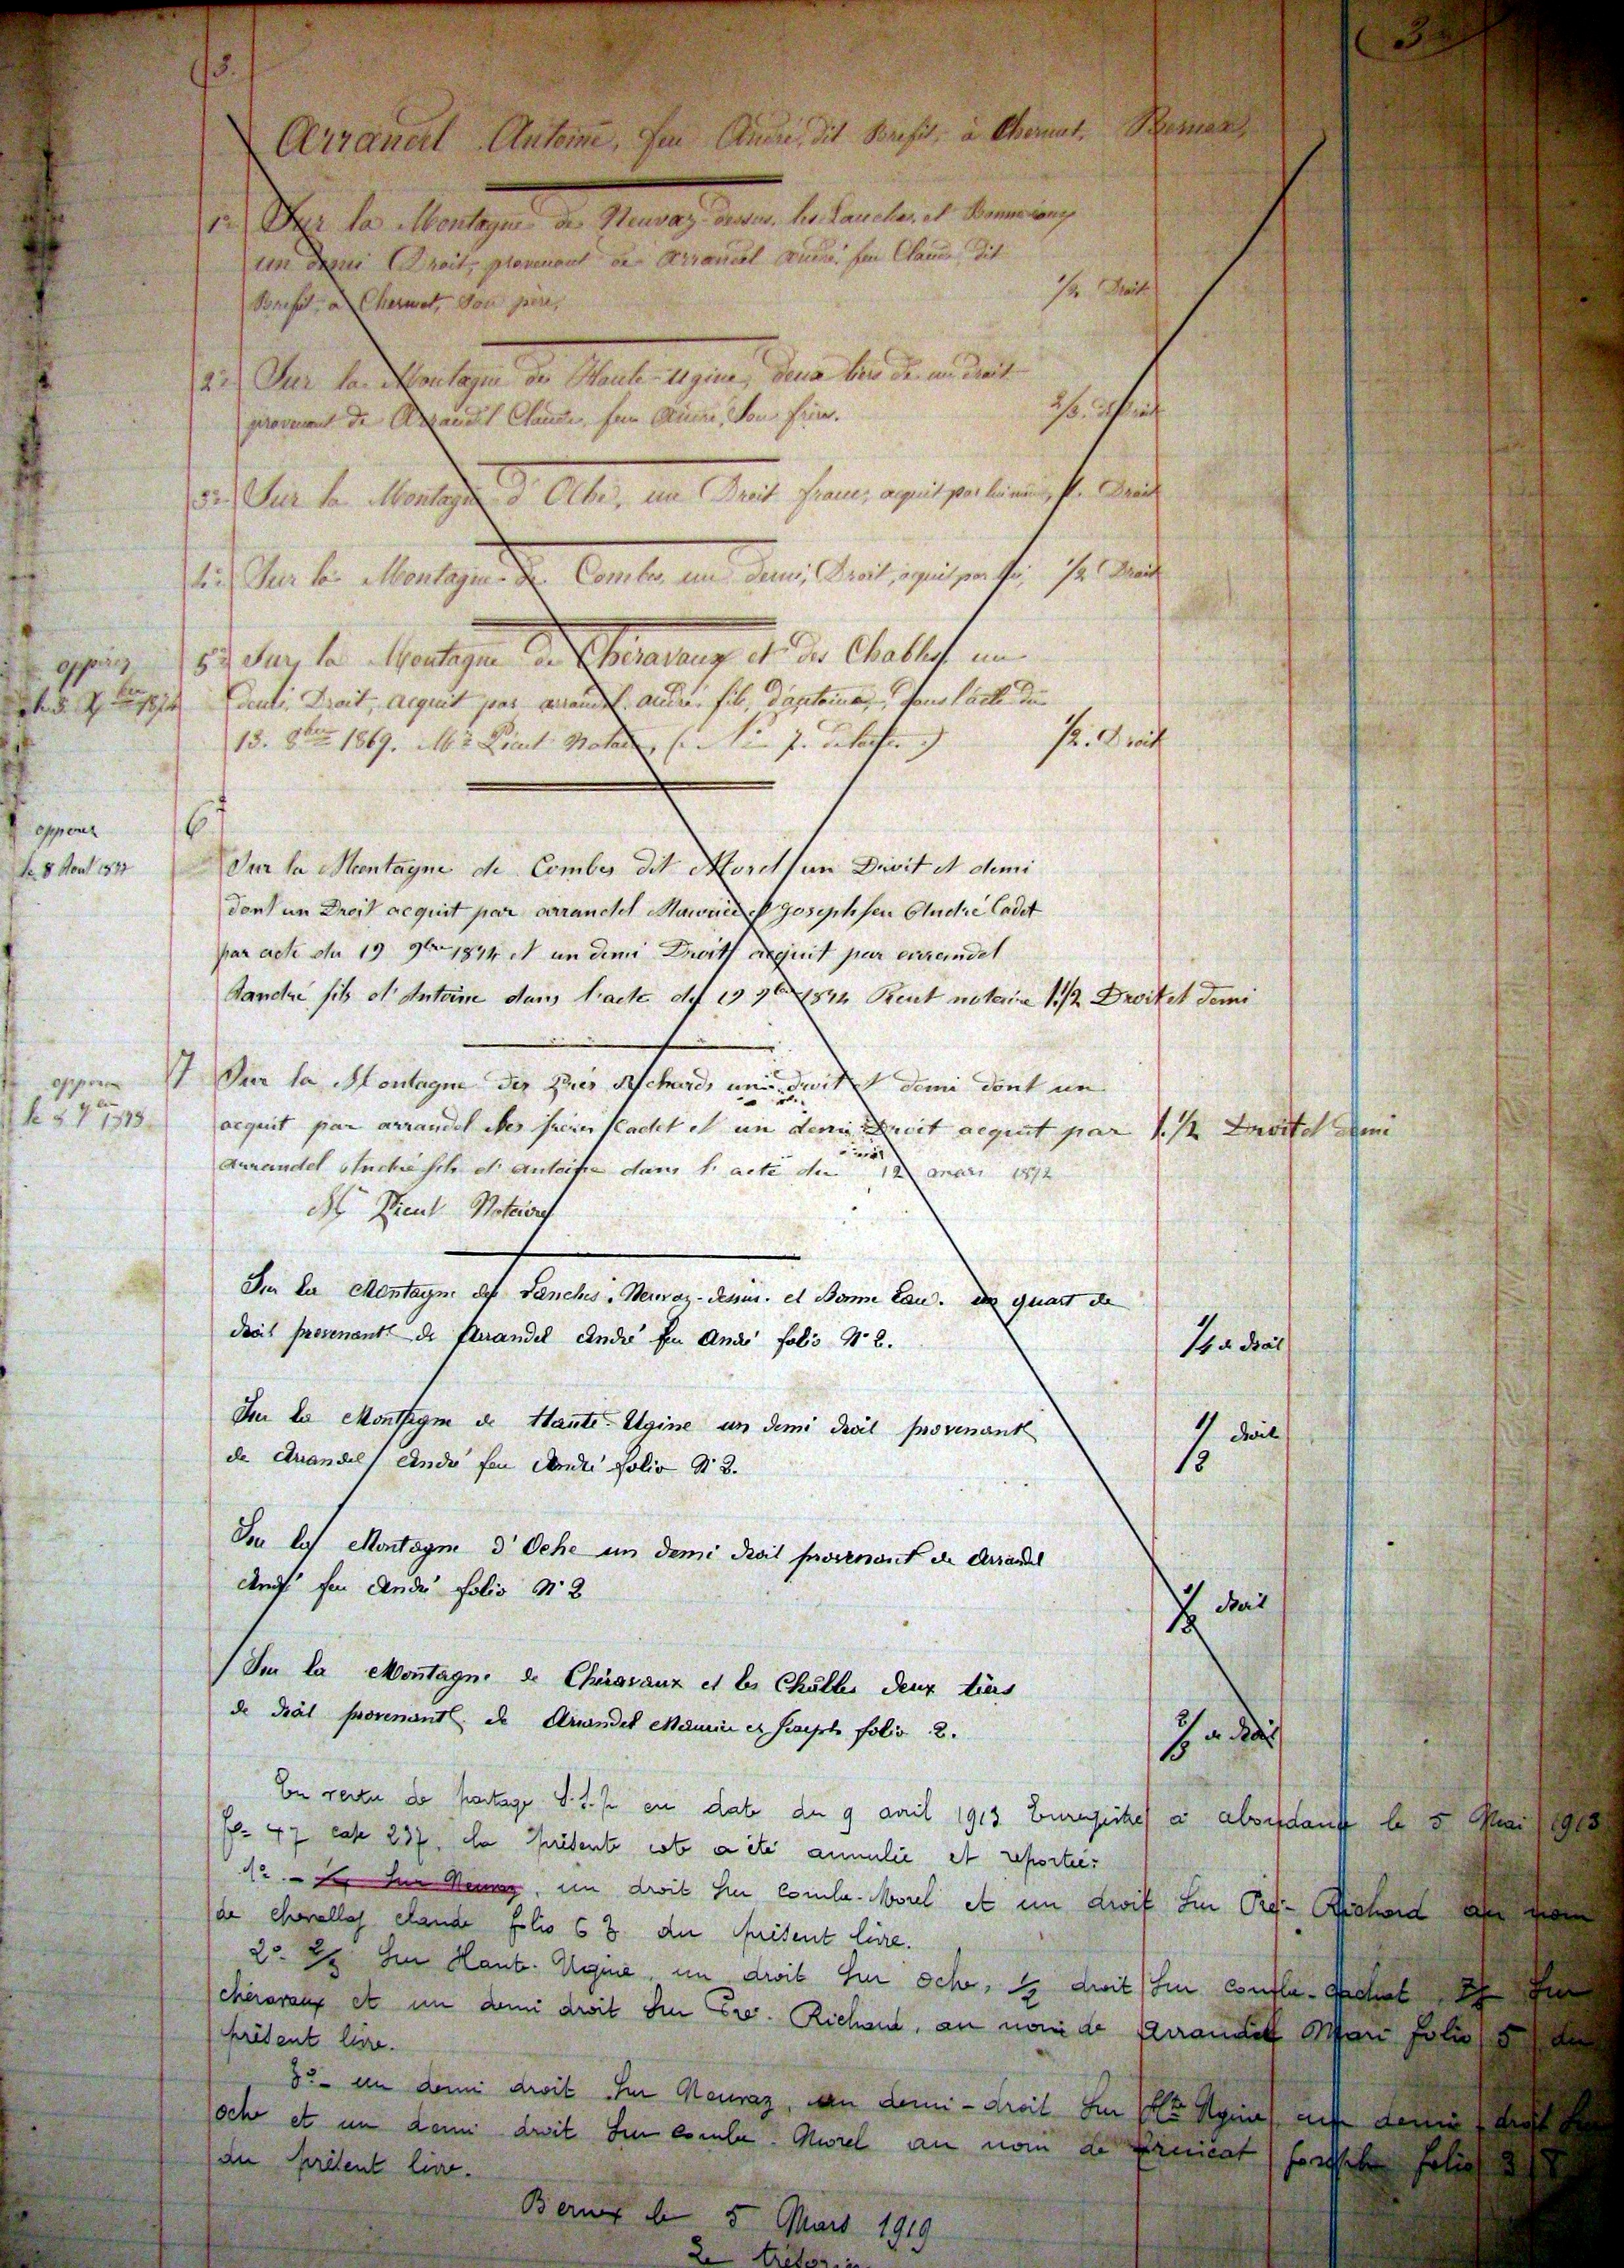 3.
3
Arrandel Antoine, feu André, dit Brefit, à Chermet, Bernex,
1º Sur la Montagne de Neuvaz-dessus, les Lanches, et Bonne-eau,
un demi Droit, provenant de Arrandel André feu Claude, dit
Brefit, à Chermet, son père,
1/2 Droit
2º Sur la Montagne de Haute-Ugine, deux tiers de un droit
provenant de Arrandel Claude, feu André, Son frère.
2/3. de Droit
3º Sur la Montagne d'Oche, un Droit franc, acquit par lui même, 1. Droit
4º Sur la Montagne de Combes un demi Droit, acquit par lui, 1/2 Droit
opposez
5º Sur la Montagne de Chéravaux et des Challes un
demi Droit, acquit par arrandel André fils d'antoine, dans l'acte du
13. 8bre 1869. Me Picut Notaire, (
1/2. Droit
6º
opposez
le 8 Aout
Sur la Montagne de Combes dit Morel un Droit et demi
dont un Droit acquit par arrandel Maurice et Joseph feu André Cadet
par acte du 19 9bre 1874 et un demi Droit acquit par arrandel
andré fils d'Antoine dans l'acte du 19 9bre 1874 Picut notaire 1.1/2 Droit et demi
opposez
7 Sur la Montagne des Prés Richards un droit et demi dont un
acquit par arrandel les frères Cadet et un demi Droit acquit par 1.1/2 Droit et demi
arrandel André fils d'antoine dans l'acte du 12 mars 1872
Me Picut Notaire
Sur la Montagne des Lanches, Neuvaz-dessus. et Bonne Eau. un quart de
droit provenant de Arrandel André feu André folio Nº 2.
1/4 de droit
Sur la Montagne de Haute-Ugine un demi droit provenant
de Arrandel André feu André folio Nº 2.
1/2 droit
Sur la Montagne d'Oche un demi droit provenant de Arrandel
André feu André folio Nº 2
1/2 droit
Sur la Montagne de Chéravaux et les Châlles deux tiers
de droit provenant de Arrandel Maurice et Joseph folio 2.
2/3 de droit
En vertu de partage S.S.P. en date du 9 avril 1913 Enregistré à abondance le 5 Mai 1913
fo- 47 case 237, la présente cote a été annulée et reportée:
1º - Sur Neuvaz, un droit sur Combe-Morel et un droit sur Pré-Richard au nom
de chevallay claude folio 63 du présent livre.
2º- 2/3 sur Haute-Ugine, un droit sur oche, 1/2 droit sur combe-Gachat, sur
chéravaux et un demi droit sur Pré-Richard, au nom de Arrandel Mari folio 5 du
présent livre.
3º- un demi droit sur Neuvaz, un demi-droit sur Hte Ugine, un demi droit sur
oche et un demi droit sur combe-Morel au nom de Joseph folio
du présent livre.
Bernex le 5 Mars 1919
Le trésorier